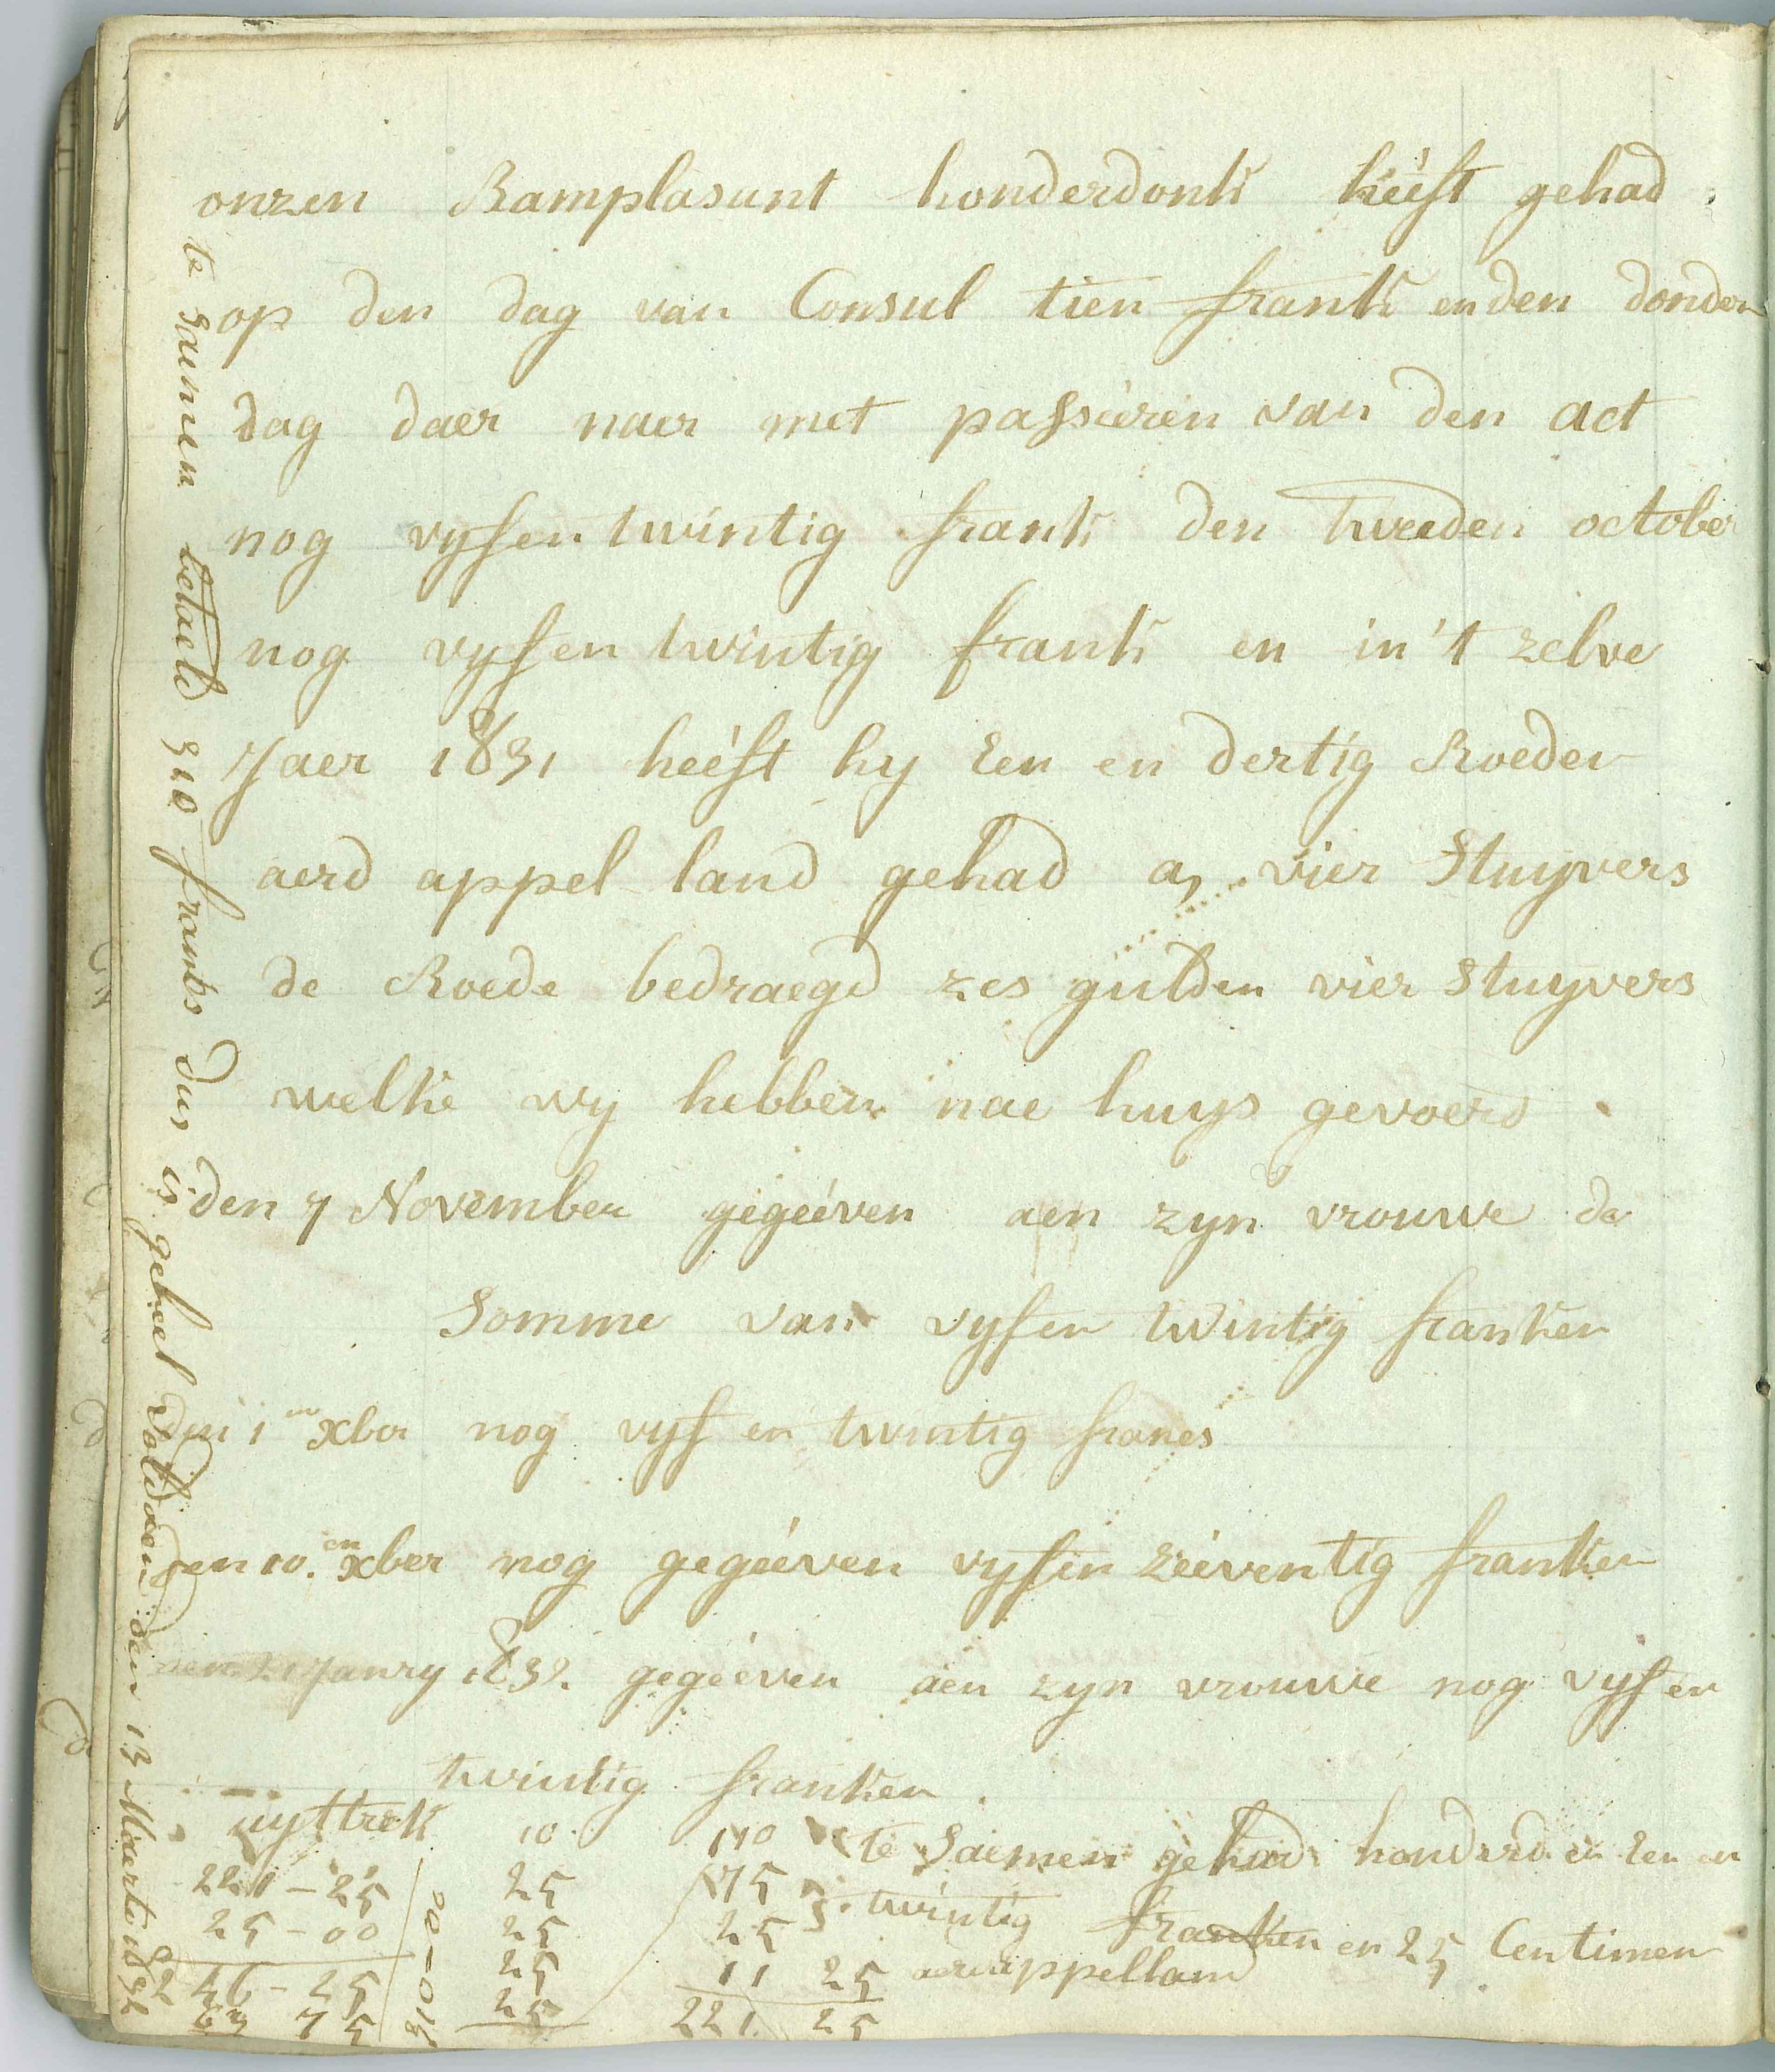 onzen Ramplasunt honderdonk heéft gehad
op den dag van Consul tien frank en den donder
dag daer naer met passieren van den act
nog vyfentwintig frank den tweeden october
nog vyfentwintig frank en in't zelve
Jaer 1831 heéft hy Een en dertig Roeden
aerd appel land gehad a, vier Stuyvers
de Roede bedraegd zes gulden vier Stuyvers
welke wy hebben nae huys gevoerd
den 7 November gegeéven aen zyn vrouwe de
Somme van vyfen twintig franken
den 1 en xber nog vyf en twintig francs
den 10. en xber nog gegeéven vyfen zeéventig franken
den 21 Janry 1832. gegeéven aen zyn vrouwe nog vyfen
twintig franken.
uyttrek 10 110 te Saemen gehad honderd en Een en
221-25 25 75 twintig franken en 25 Centimen
25-00 25 25 aerdappelland
246-25 25 11 25
63 75 25 221 25
310-00
te Saemen betaeld 310 franks dus is geheel voldoen den 13 Maerte 1832